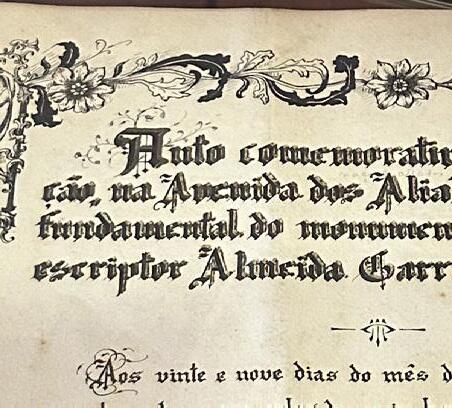 Auto comemorativ
ção, na Avenida dos Alia
fundamental do monumen
escriptor Almeida Garr
Aos vinte e nove dias do mês d